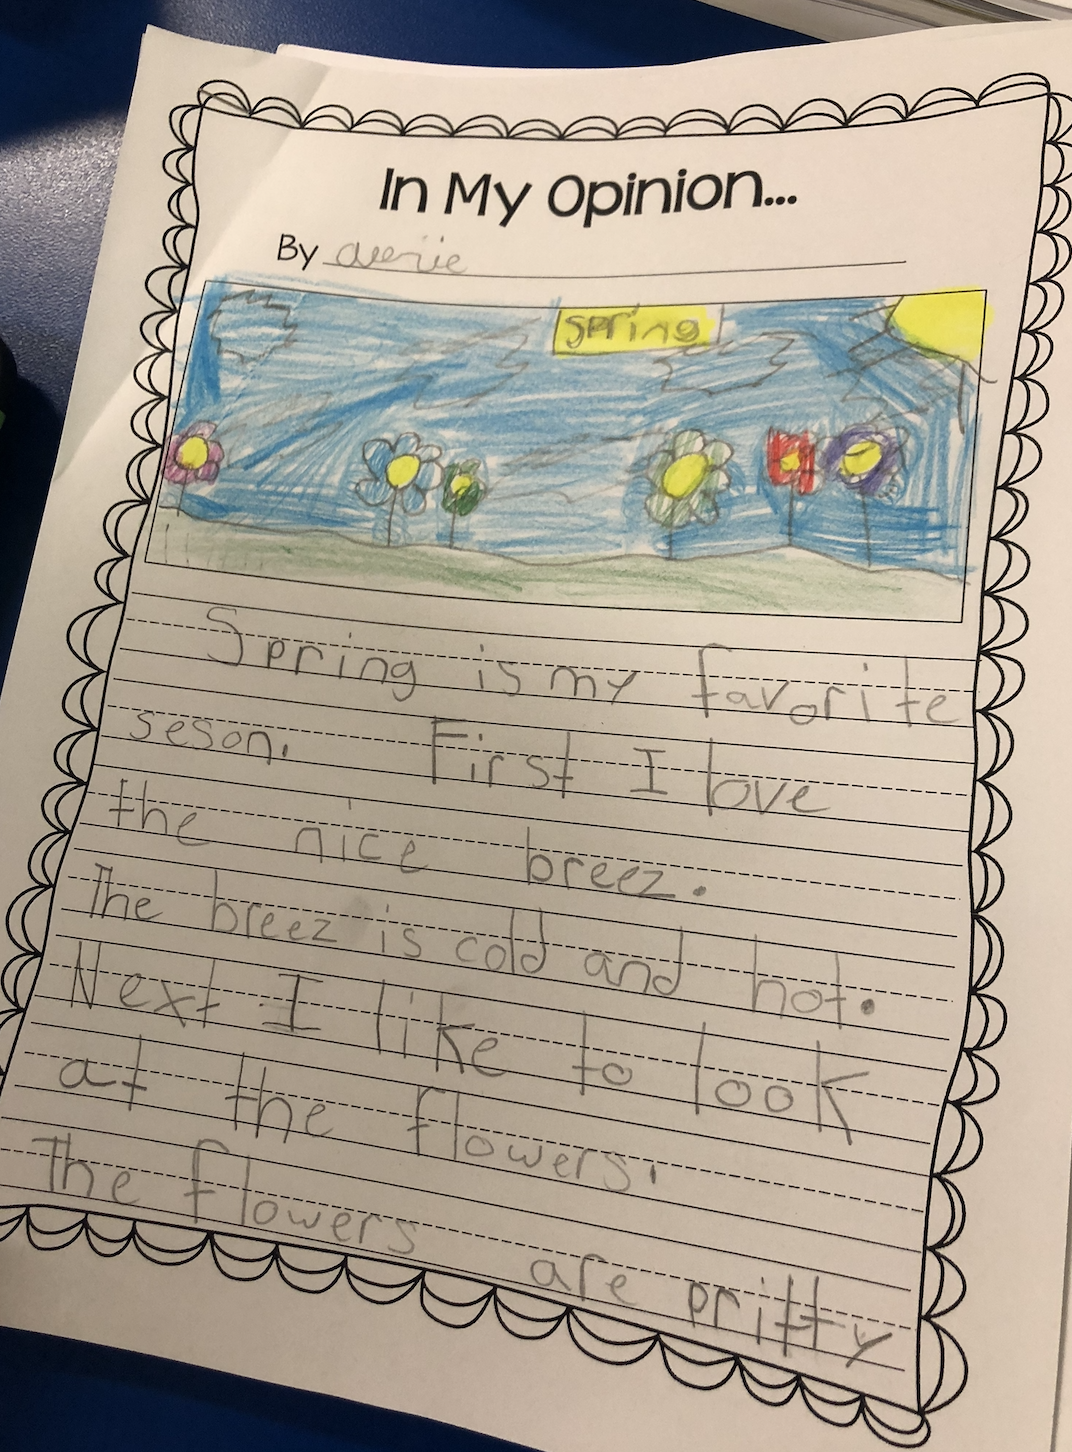 In My Opinion...
By averie
spring
Spring is my favorite
seson. First I love
the nice breez.
The breez is cold and hot.
Next I like to look
at the flowers.
The flowers are pritty